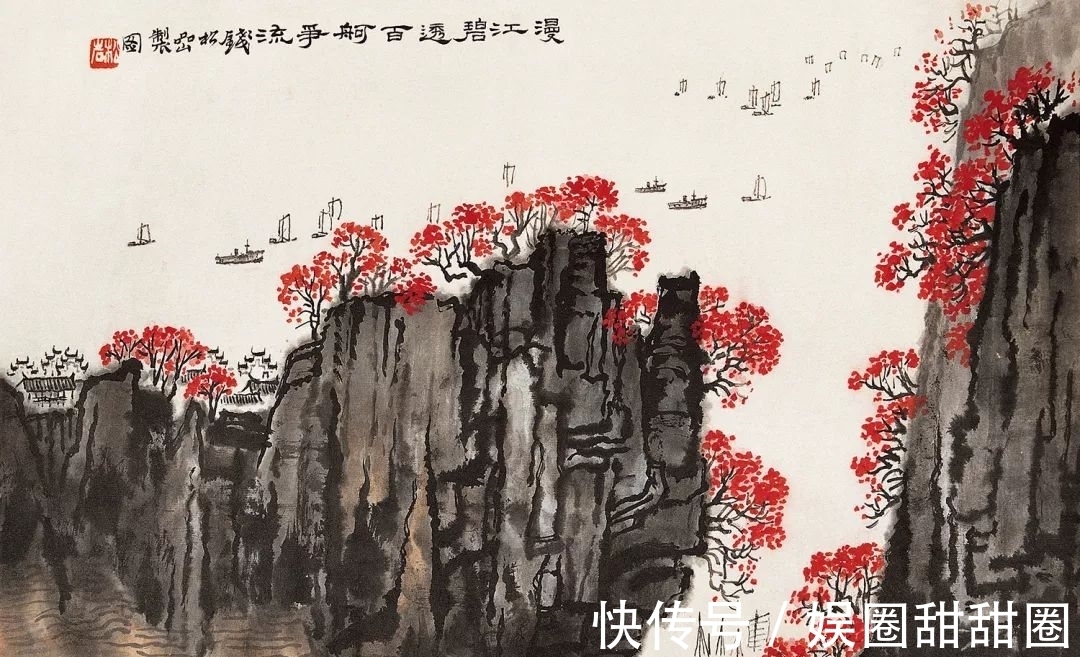 漫江碧透百舸爭流錢松嵒製圖
快传号 / 娱圈甜甜圈